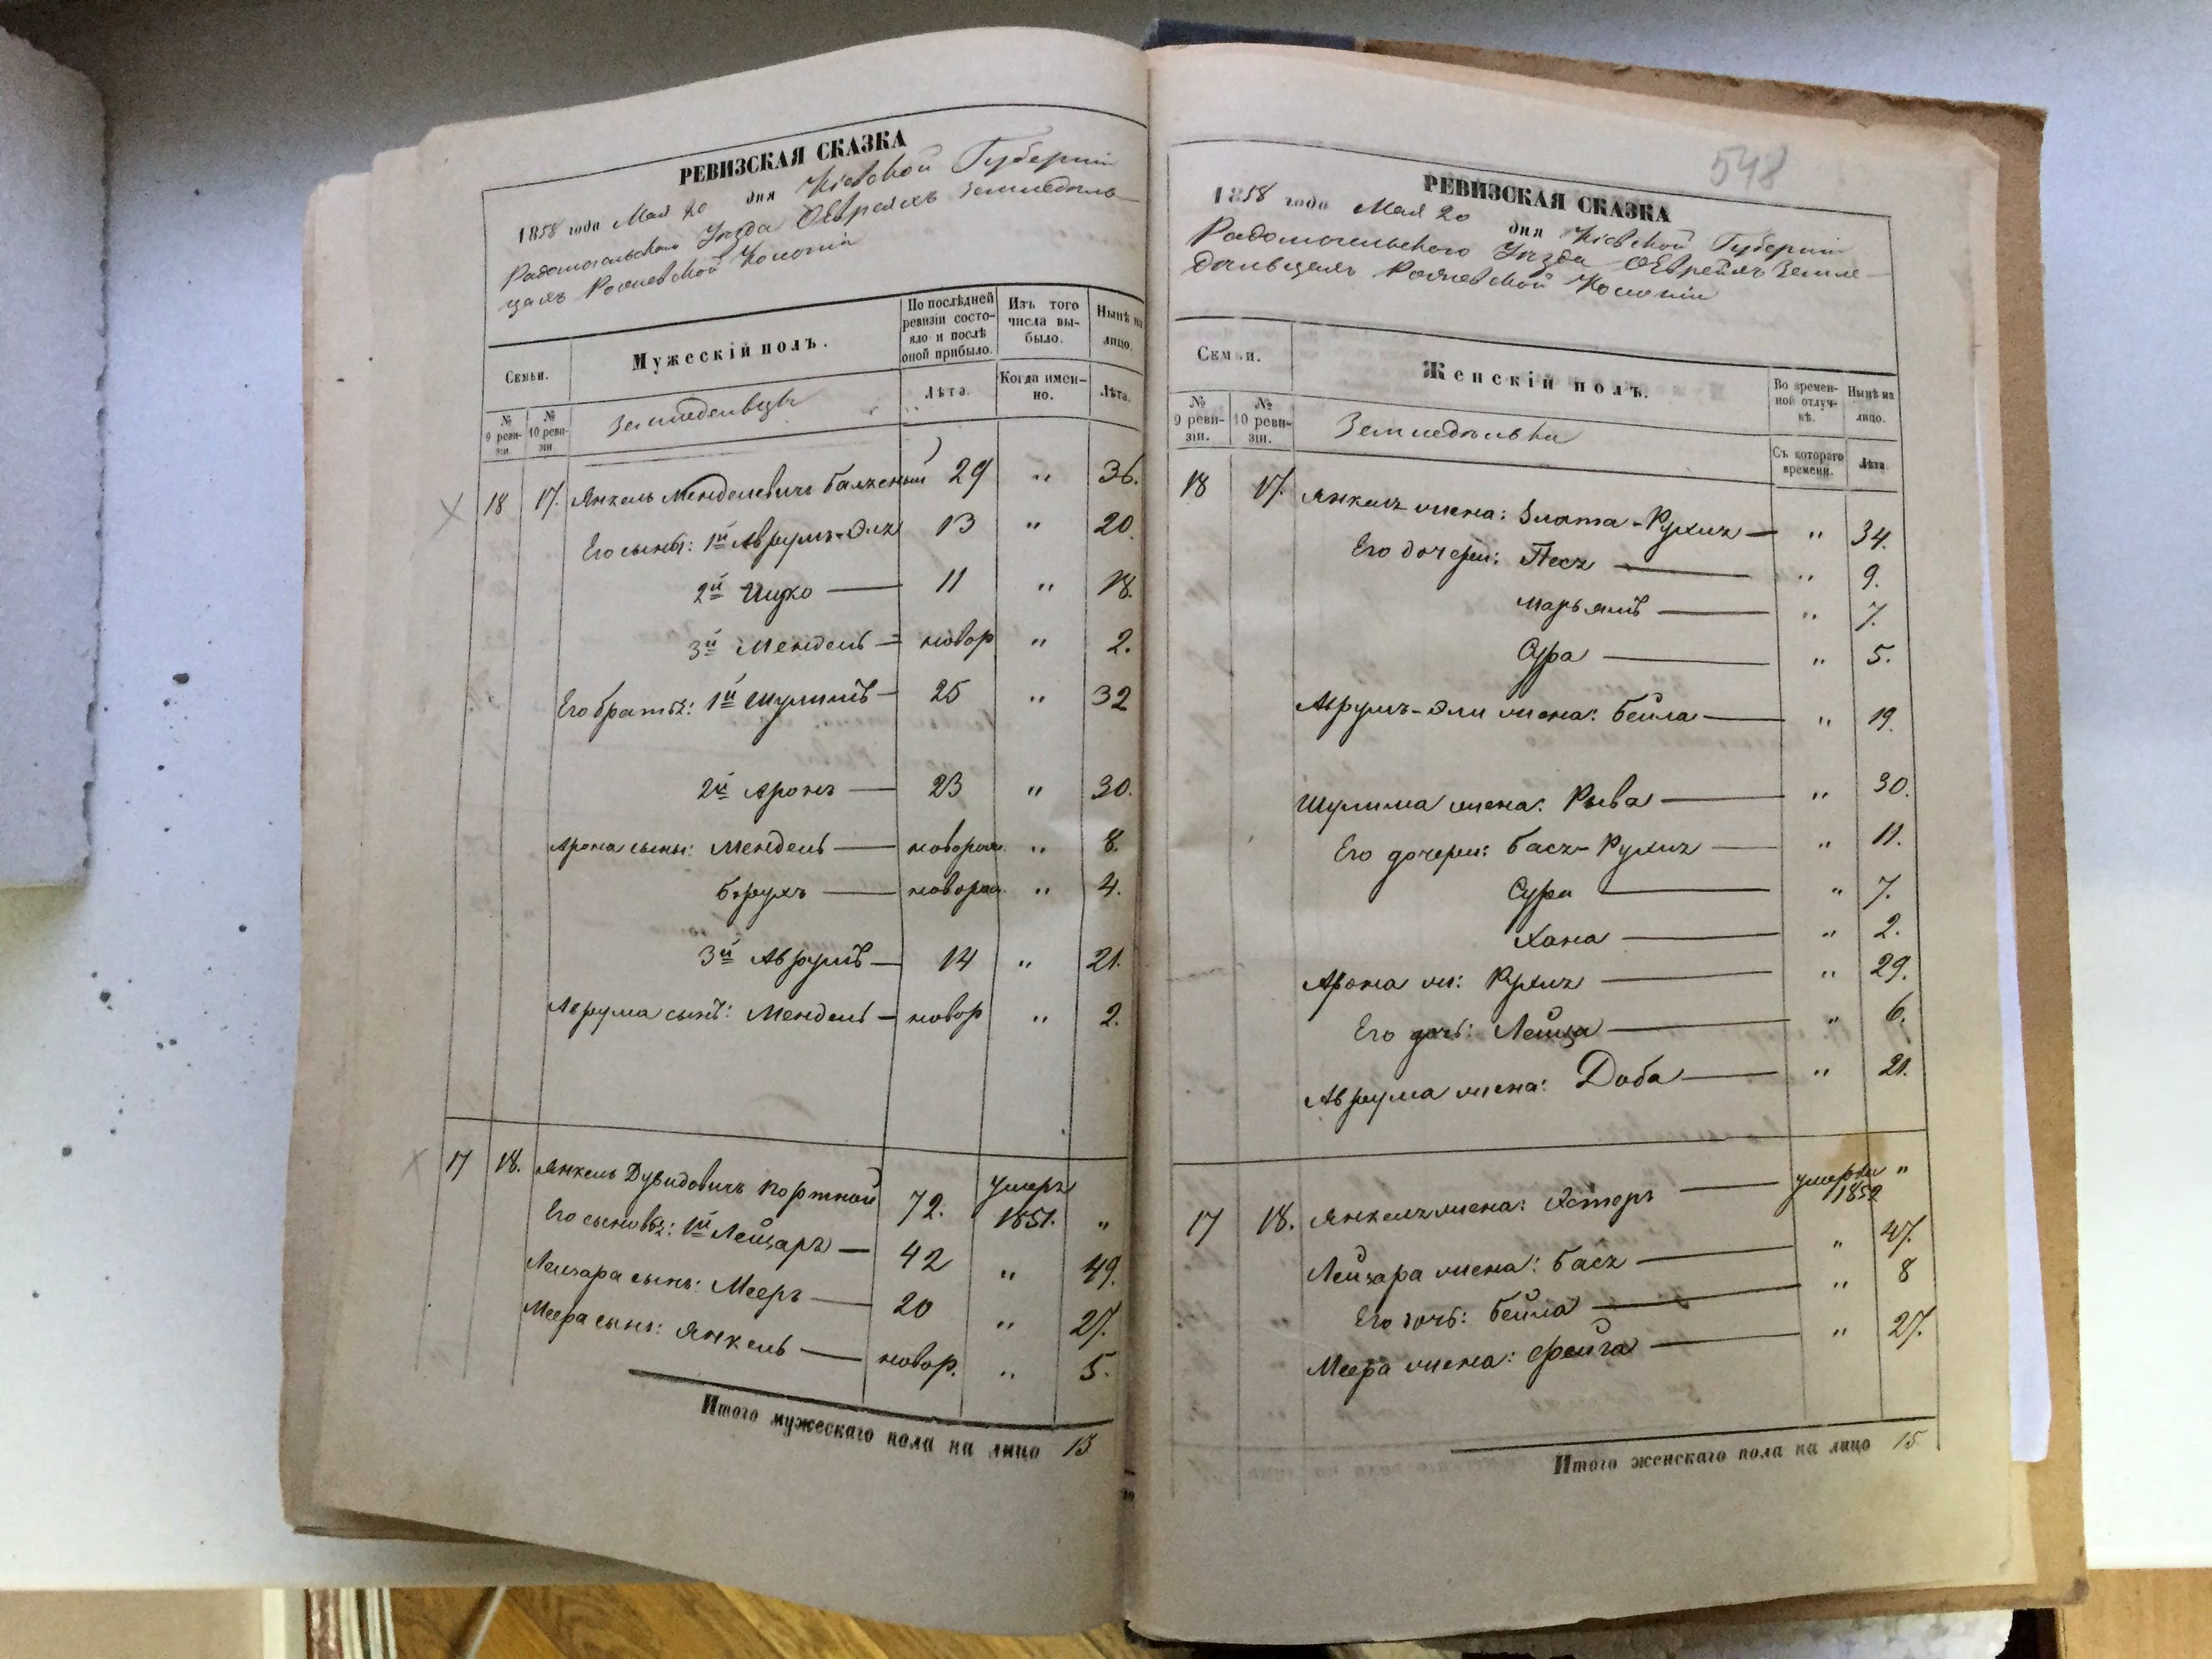 РЕВИЗСКАЯ СКАЗКА
1858 года Мая 20 дня Кіевской Губерніи
Радомысльского Уѣзда О Евреяхъ Земледѣль-
цахъ Колоніи
Семьи.
Мужескій полъ.
По послѣдней ревизіи состо-яло и послѣ оной прибыло.
Изъ того числа вы-было.
Нынѣ на лицо.
№ 9 реви-зіи.
№ 10 реви-зіи
Земледельцы
Лѣта.
Когда имен-но.
Лѣта.
18 17. Янкель Менделевичъ 29 " 36.
Его сыновья: 1й Аврумъ-Эля 13 " 20.
2й Ицко — 11 " 18.
3й Мендель — новор " 2.
Его братья: 1й Шулимъ — 25 " 32
2й Аронъ — 23 " 30.
Арона сыны: Мендель — новорож. " 8.
Борухъ — новорож. " 4.
3й Аврумъ — 14 " 21.
Аврума сынъ: Мендель — новор " 2.
17 18. Янкель Дувидовичъ Портной 72. умеръ 1851. "
Его сыновья: 1й Лейзаръ — 42 " 49.
Лейзара сынъ: Мееръ — 20 " 27.
Меера сынъ: Янкель — новор. " 5.
Итого мужескаго пола на лицо 13
548
РЕВИЗСКАЯ СКАЗКА
1858 года Мая 20 дня Кіевской Губерніи
Радомысльского Уѣзда О Евреяхъ Земле-
дѣльцахъ Колоніи
Семьи.
Женскій полъ.
Во времен-ной отлуч-кѣ.
Нынѣ на лицо.
№ 9 реви-зіи.
№ 10 реви-зіи.
Земледѣльки
Съ котораго времени.
Лѣта
18 17. Янкеля жена: Злата-Рухля — " 34.
Его дочери: Песя — " 9.
Марьямъ — " 7.
Сура — " 5.
Аврумъ-Эли жена: Бейла — " 19.
Шулима жена: Рыва — " 30.
Его дочери: Бася-Рухля — " 11.
Сура — " 7.
Хана — " 2.
Арона ж: Рухля — " 29.
Его дочь: Лейца — " 6.
Аврума жена: Доба — " 21.
17 18. Янкеля жена: Эстеръ — умерла 1852 "
Лейзара жена: Бася — " 47.
Его дочь: Бейла — " 8
Меера жена: Фейга — " 27.
Итого женскаго пола на лицо 15.